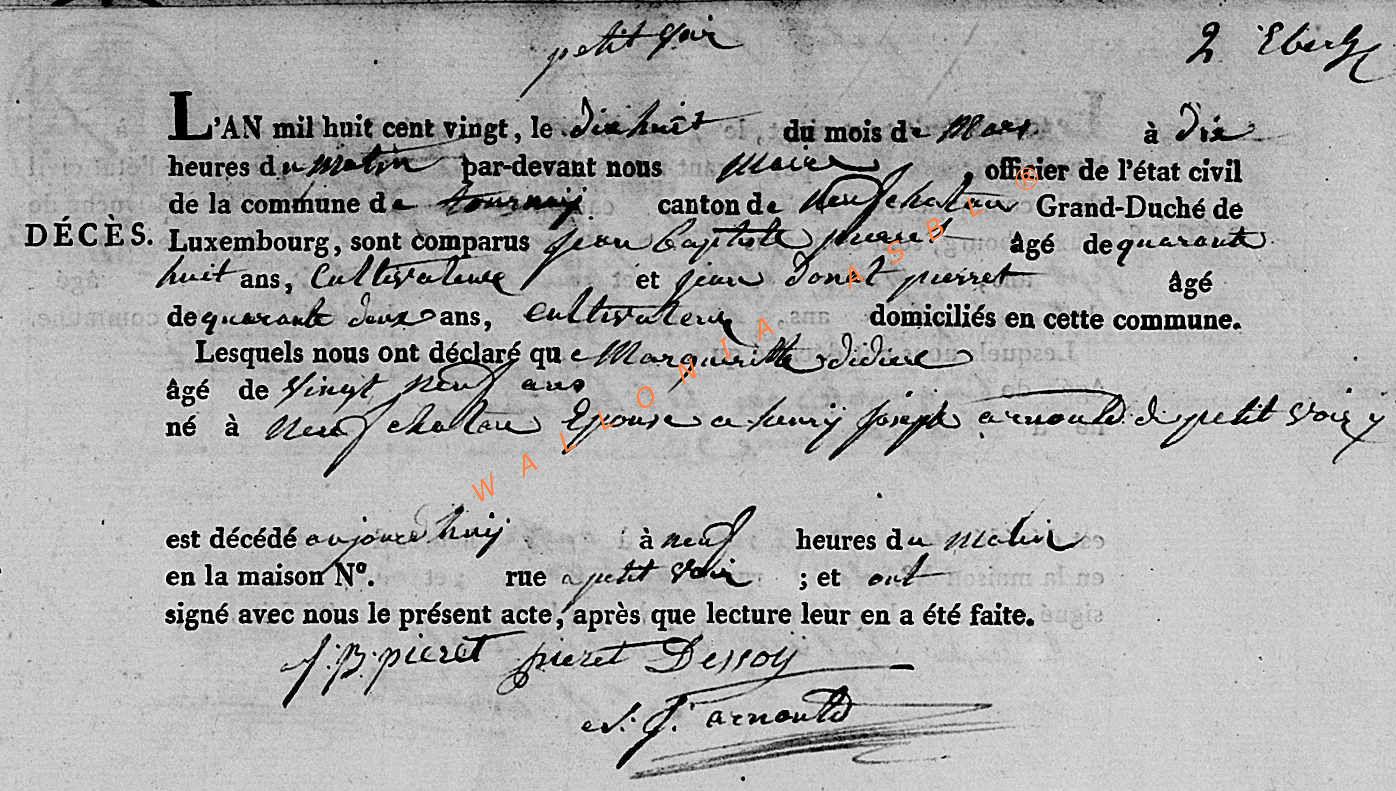 petit Voir
2
L'AN mil huit cent vingt, le dix huit du mois de Mars à dix
heures du Matin par-devant nous Maire, officier de l'état civil
de la commune de tournay canton de Neufchateau Grand-Duché de
DÉCÈS.
Luxembourg, sont comparus jean baptiste pierret âgé de quarante
huit ans, Cultivateur et jean donat pierret âgé
de quarante deux ans, Cultivateur domiciliés en cette commune.
Lesquels nous ont déclaré que Margueritte didier
âgé de vingt neuf ans
né à Neufchateau Epouse a henry joseph arnould de petit voir
est décédé aujourd'huij à neuf heures du Matin
en la maison N°. rue a petit Voir ; et ont
signé avec nous le présent acte, après que lecture leur en a été faite.
J. B. pieret pieret Dessoij
J. arnould
WALLONIA ASBL ®